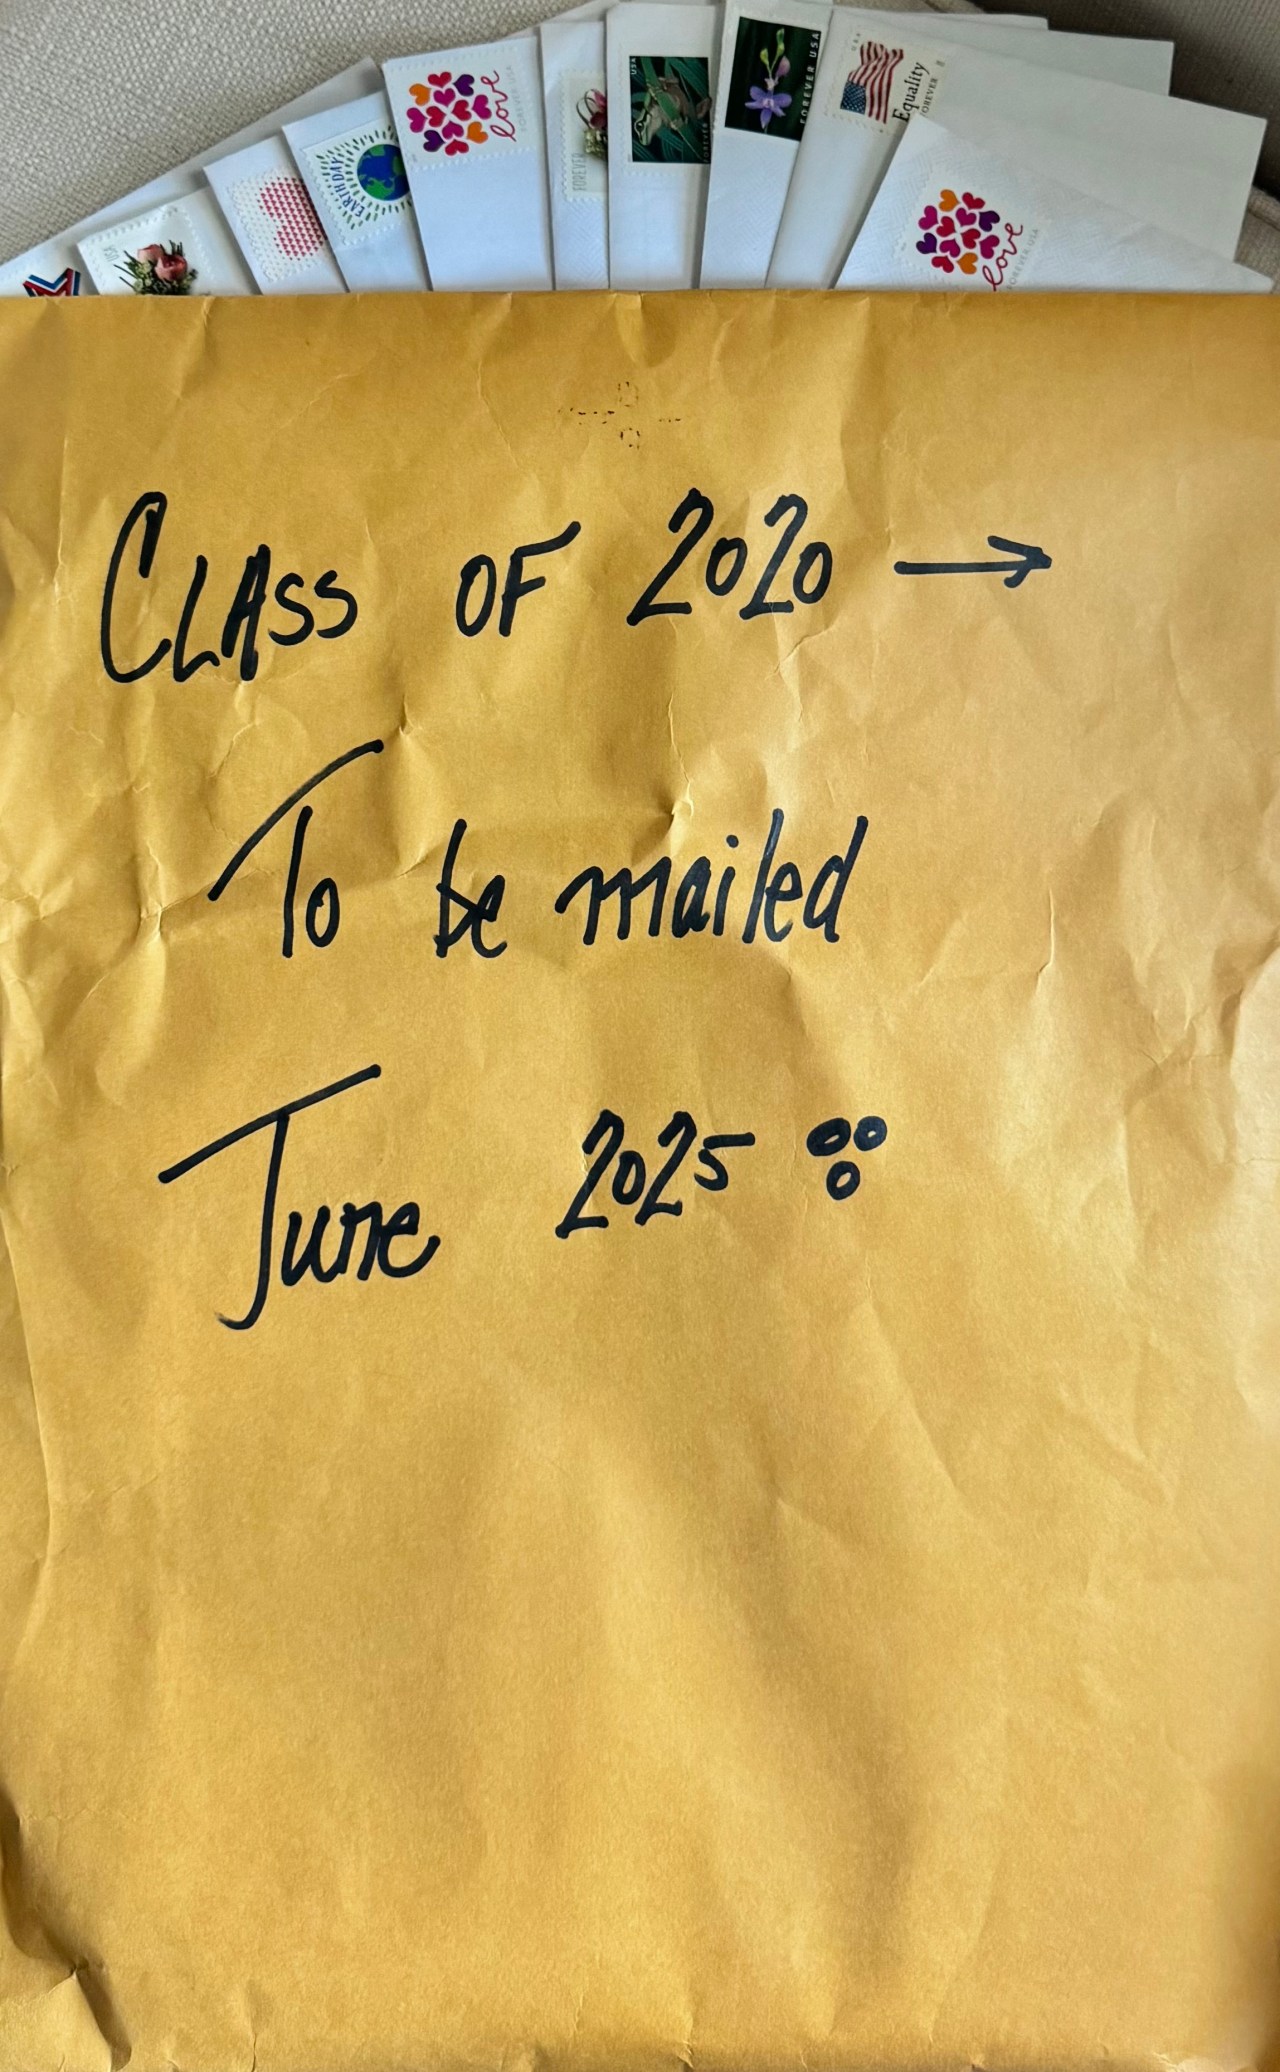 USA
EARTH DAY
love
FOREVER USA
FOREVER
USA
FOREVER
FOREVER USA
USA
Equality
FOREVER
love
FOREVER USA
CLASS OF 2020 →
To be mailed
June 2025